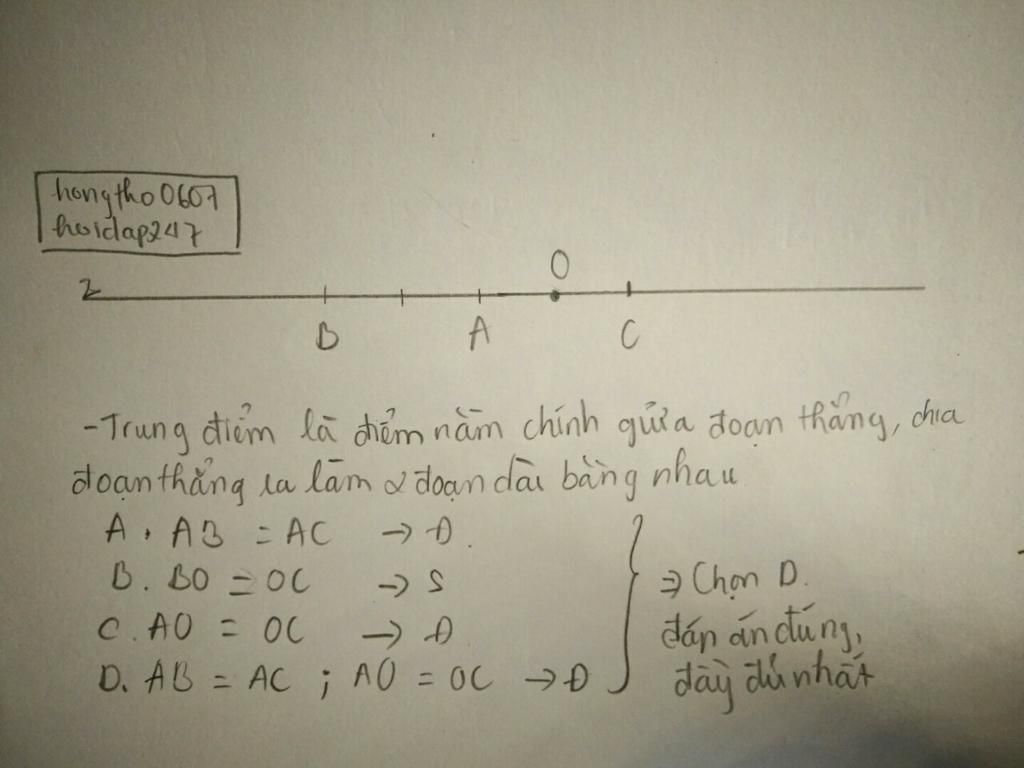 hongtho0607
hoidap247
O
B A C
-Trung điểm là điểm nằm chính giữa đoạn thẳng, chia
đoạn thẳng ra làm 2 đoạn dài bằng nhau
A. AB = AC → Đ.
B. BO = OC → S
C. AO = OC → Đ
D. AB = AC ; AO = OC → Đ
⇒ Chọn D.
đáp án đúng,
đầy đủ nhất